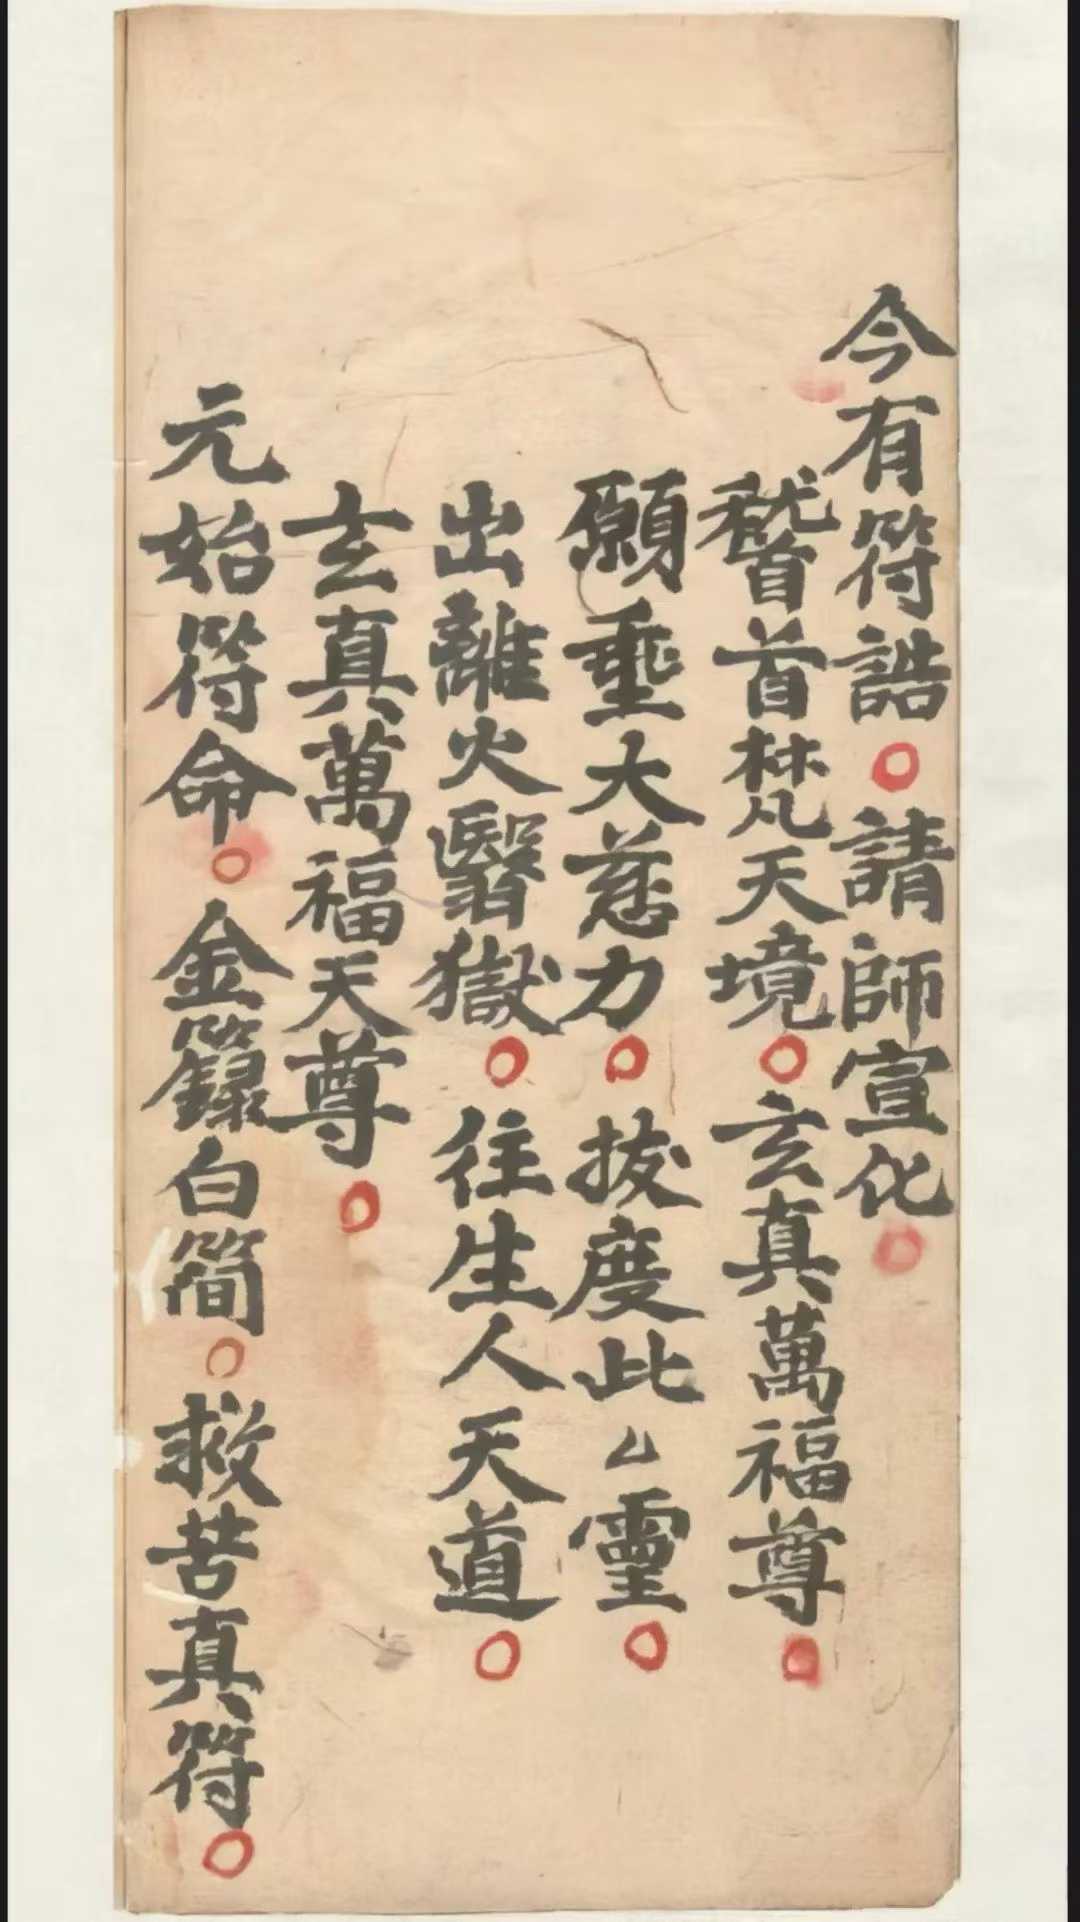 今有符誥○請師宣化○
稽首梵天境○玄真萬福尊○
願垂大慈力○拔度此厶靈○
出離火翳獄○往生人天道○
玄真萬福天尊○
元始符命○金籙白簡○救苦真符○